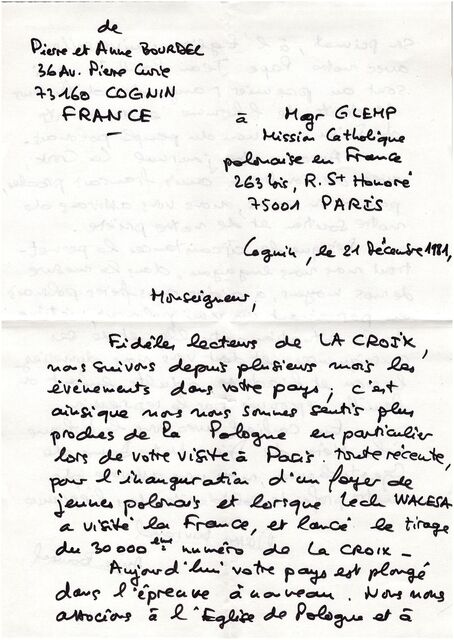 de
Pierre et Anne BOURDEL
36 Av. Pierre Curie
73160 COGNIN
FRANCE
à Mgr GLEMP
Mission Catholique
polonaise en France
263 bis, R. St Honoré
75001 PARIS
Cognin, le 21 Décembre 1981,
Monseigneur,
Fidèles lecteurs de LA CROIX,
nous suivons depuis plusieurs mois les
événements dans votre pays ; c'est
ainsi que nous nous sommes sentis plus
proches de la Pologne en particulier
lors de votre visite à Paris, toute récente,
pour l'inauguration d'un foyer de
jeunes polonais et lorsque Lech WALESA
a visité la France, et lancé le tirage
du 30000ème numéro de LA CROIX -
Aujourd'hui votre pays est plongé
dans l'épreuve à nouveau. Nous nous
associons à l'Eglise de Pologne et à